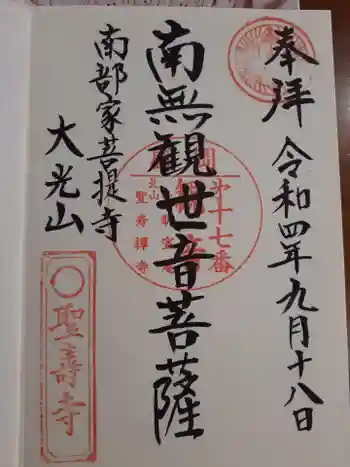 奉拝
令和四年九月十八日
南無観世音菩薩
第十七番
北山
聖寿禅寺
南部家菩提寺
大光山
聖壽寺